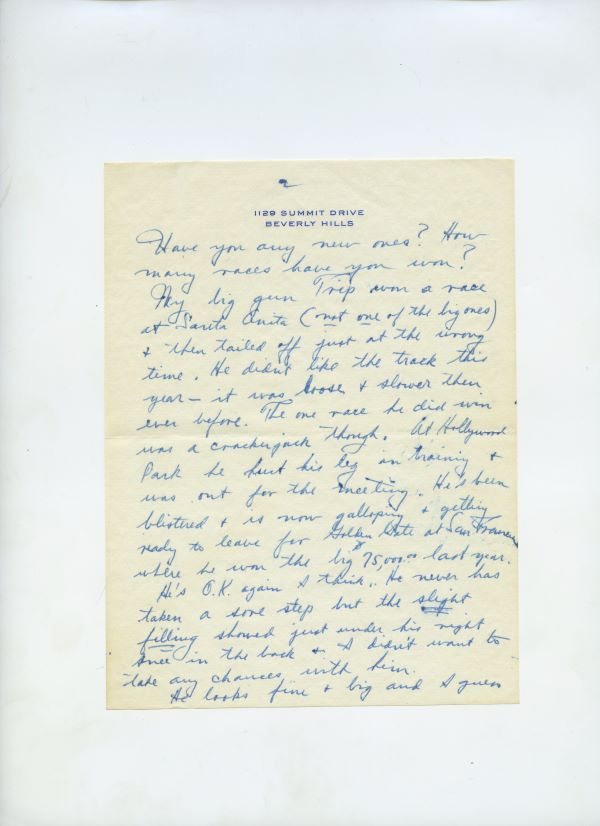 2
1129 SUMMIT DRIVE
BEVERLY HILLS
Have you any new ones? How
many races have you won?
My big gun Trip won a race
at Santa Anita (not one of the big ones)
& then tailed off just at the wrong
time. He didn't like the track this
year — it was looser & slower then
ever before. The one race he did win
was a crackerjack though. At Hollywood
Park he hurt his leg in training &
was out for the meeting. He's been
blistered & is now galloping & getting
ready to leave for Golden Gate at San Francisco
where he won the big $75,000.00 last year.
He's O.K. again I think. He never has
taken a sore step but the slight
filling showed just under his right
knee in the back & I didn't want to
take any chances with him.
He looks fine & big and I guess